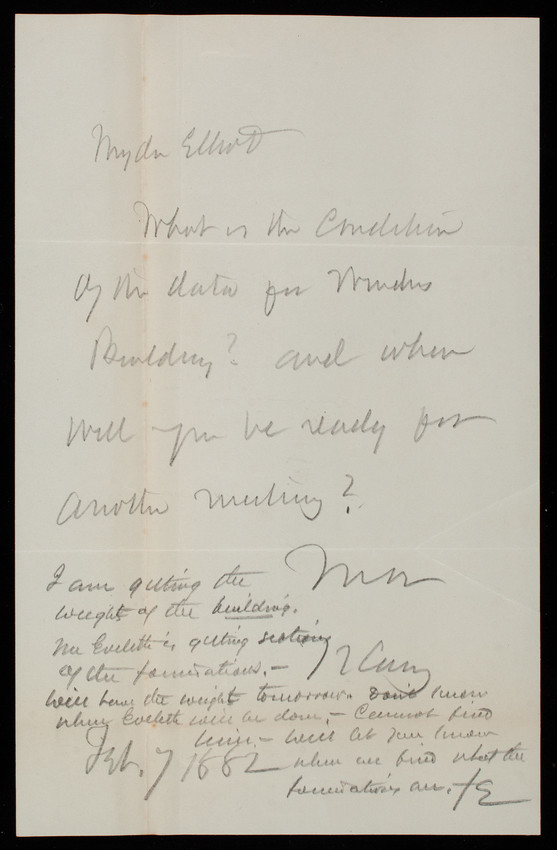 My dr Elliot
What is the Condition
of the data for Winders
Building? and when
will you be ready for
another meeting?
I am getting the
weight of the building.
Mr Eveleth is getting sections
of the foundations. —
T L Casey
Will have the weight tomorrow. Don't know
when Eveleth will be done, — Cannot find
him. — Will let you know
Feb. 7 1882
when we find what the
foundations are.